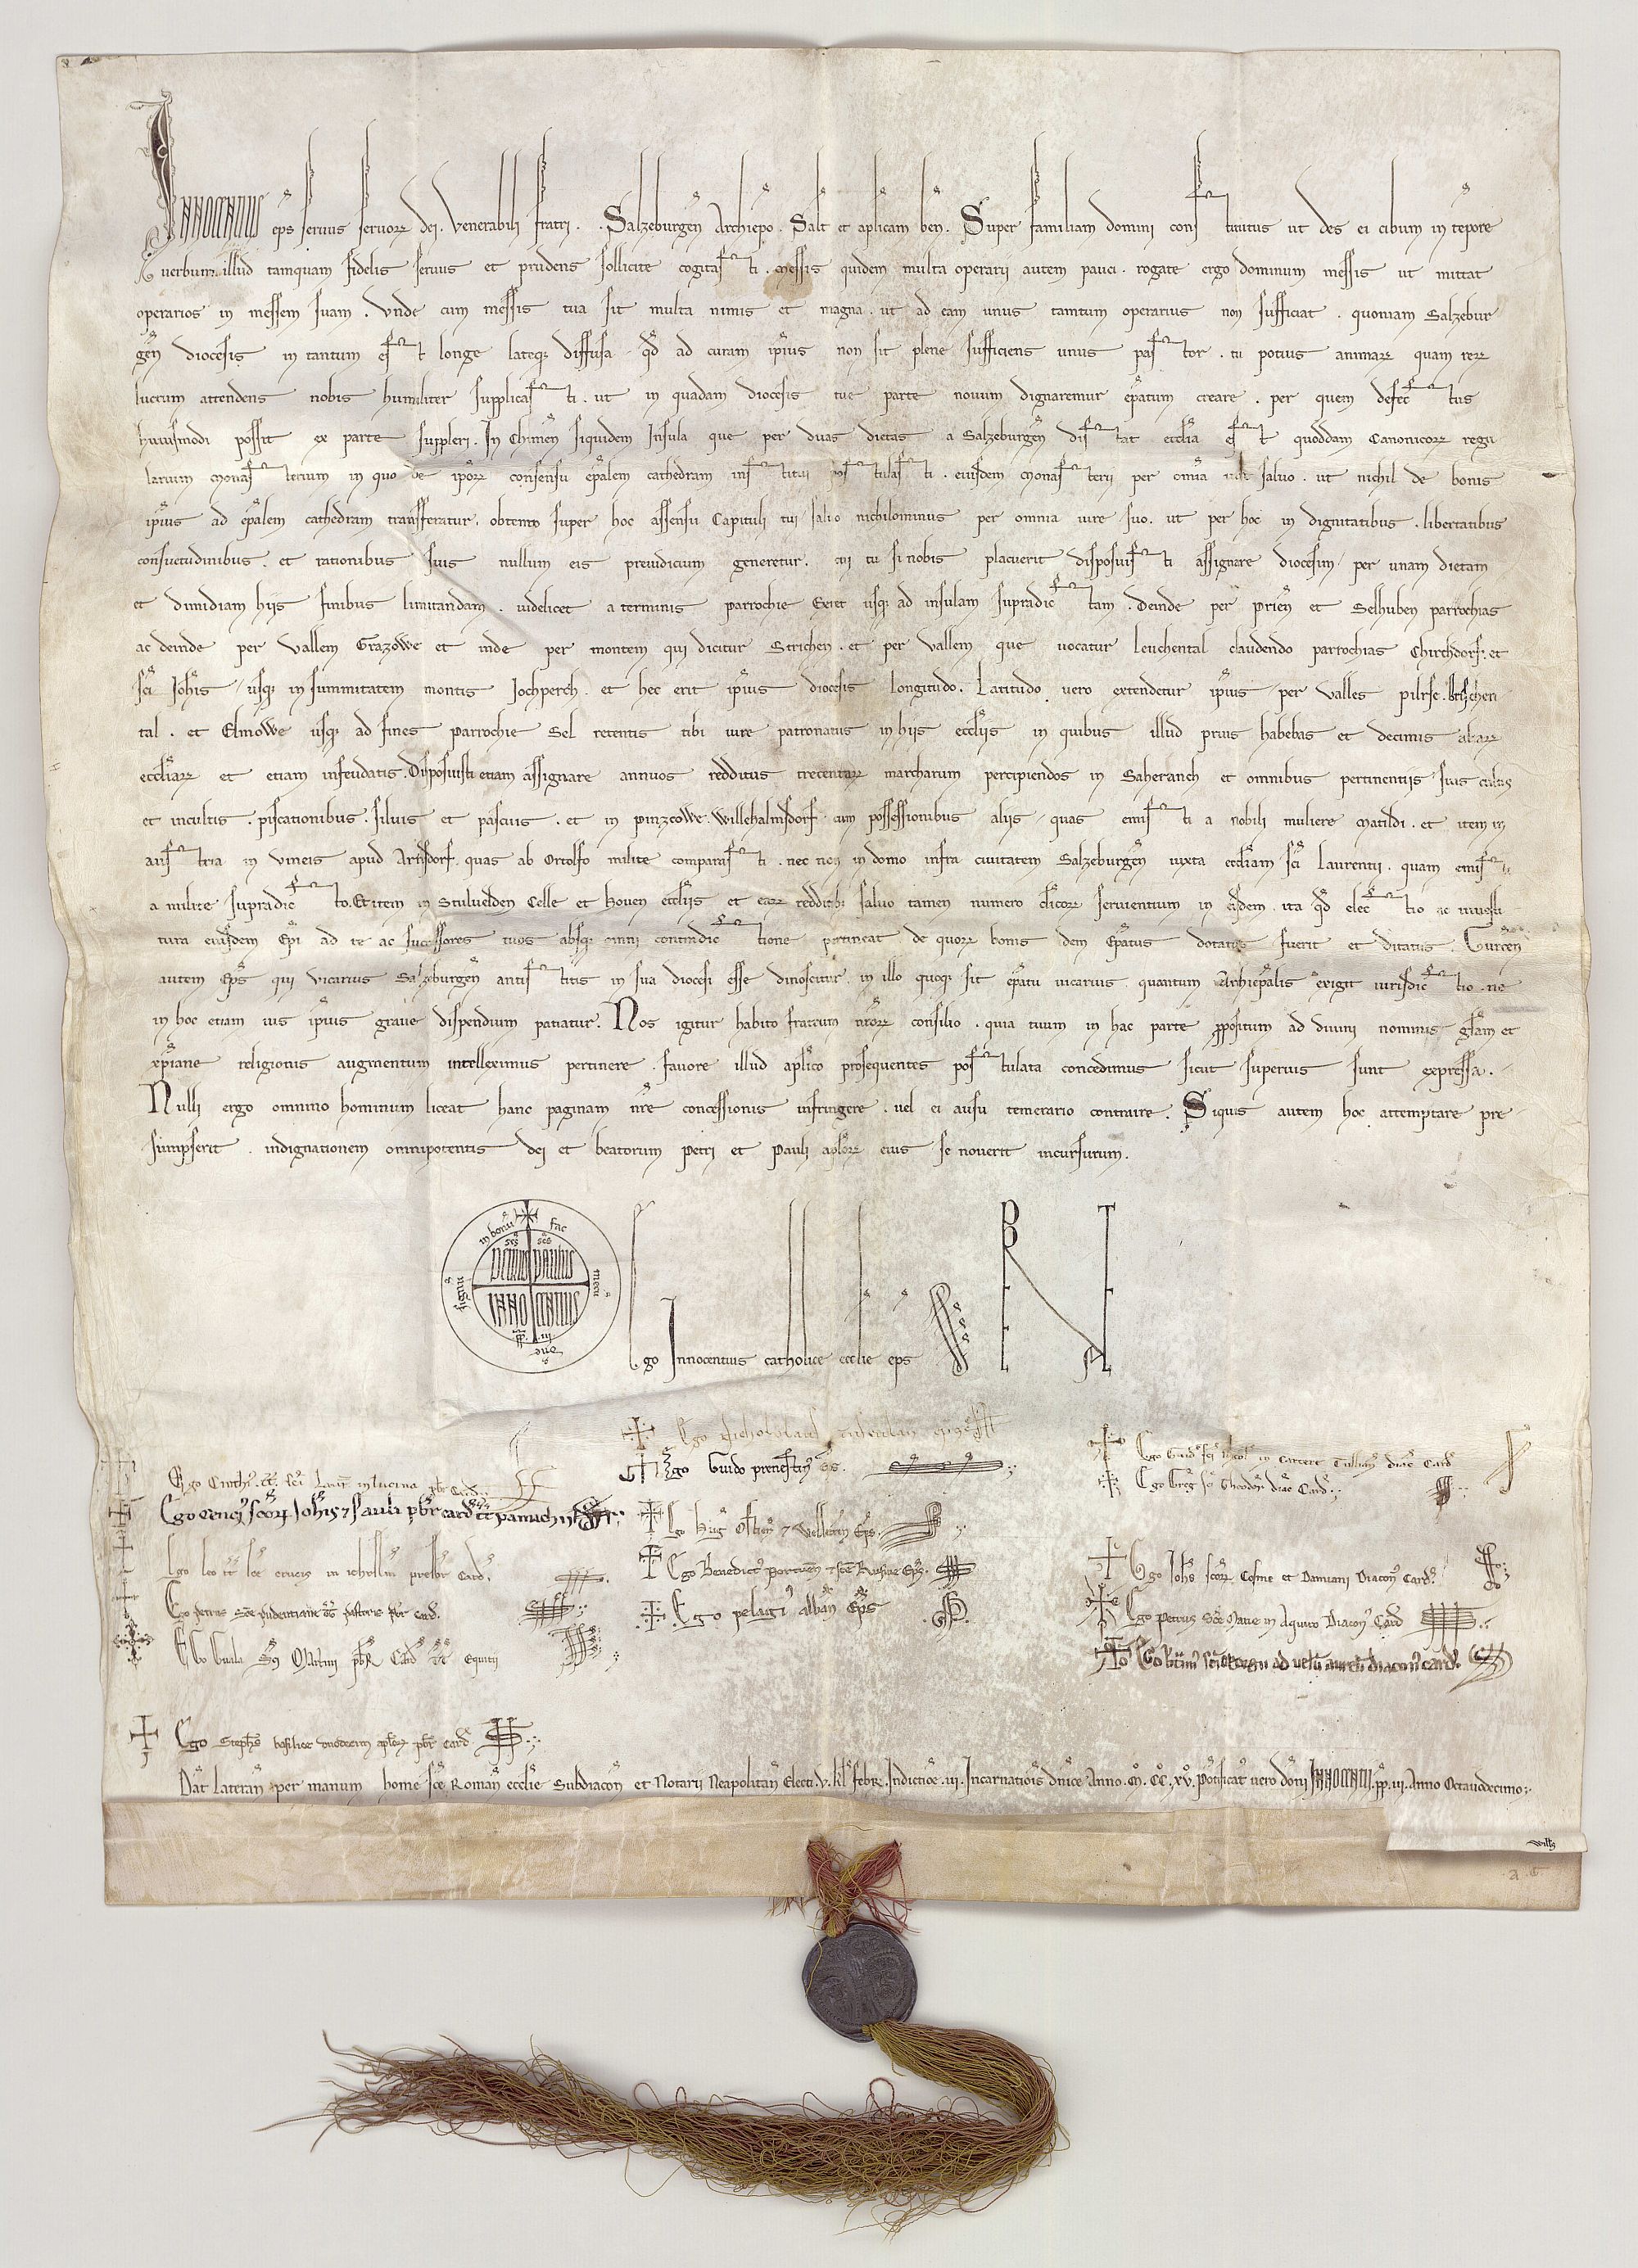 INNOCENTIUS ep̄s seruus seruorꝝ dei. Venerabili fratri. . Salzeburgen̄ Archiepo. Salt et aplicam ben̄. Super familiam domini constitutus ut des ei cibum in tēpore
verbum illud tamquam fidelis seruus et prudens sollicite cogitasti. messis quidem multa operarii autem pauci. rogate ergo dominum messis ut mittat
operarios in messem suam. Vnde cum messis tua sit multa nimis et magna. ut ad eam unus tantum operarius non sufficiat. quoniam Salzebur
gen̄ diocesis in tantum est longe lateqꝫ diffusa. qd̄ ad curam ip̄ius non sit plene sufficiens unus pastor. tu potius animarꝝ quam rerꝝ
lucrum attendens nobis humiliter supplicasti. ut in quadam diocesis tue parte nouum dignaremur ep̄atum creare. per quem defectus
huiusmodi possit ex parte suppleri. In Chimen̄ siquidem Insula que per duas dietas a Salzeburgen̄ distat eccl̄ia est quoddam Canonicorꝝ regu
larium monasterium in quo de ip̄orꝝ consensu ep̄alem cathedram institui postulasti. eiusdem monasterii per omnia iure saluo. ut nichil de bonis
ip̄ius ad ep̄alem cathedram transferatur. obtento super hoc assensu Capituli tui saluo nichilominus per omnia iure suo. ut per hoc in dignitatibus. libertatibus
consuetudinibus. et rationibus suis nullum eis preiudicium generetur. cui tu si nobis placuerit disposuisti assignare diocesim. per unam dietam
et dimidiam hiis finibus limitandam. uidelicet a terminis parrochie Exiet usqꝫ ad insulam supradictam. Deinde per prien̄ et Selhuben parrochias
ac deinde per vallem Grazowe et inde per montem qui dicitur Strichen. et per vallem que uocatur leuchental claudendo parrochias Chirchdorf. et
sc̄i Joh̄is. usqꝫ in summitatem montis Jochperch. et hec erit ip̄ius diocesis longitudo. Latitudo uero extendetur ip̄ius per valles pilrse.
tal. et Elmowe usqꝫ ad fines parrochie Sel retentis tibi iure patronatus in hiis eccl̄iis in quibus illud prius habebas et decimis
eccl̄iarꝝ et etiam infeudatis. Disposuisti etiam assignare annuos redditus trecentarꝝ marcharum percipiendos in Saheranch et omnibus pertinentiis suis cultis
et incultis. piscationibus. siluis et pascuis. et in pinzcowe. Willehalmsdorf. cum possessionibus aliis. quas emisti a nobili muliere Matildi. et item in
austria in vineis apud Arnsdorf. quas ab Ortolfo milite comparasti. nec non in domo infra ciuitatem Salzeburgen̄ iuxta eccl̄iam sc̄i Laurentii. quam emisti
a milite supradicto. Et item in Stuluelden Celle et Houen eccl̄iis et earꝝ redditibꝫ saluo tamen numero cl̄icorꝝ seruientium in eisdem. ita qd̄ electio ac inuesti
tura eiusdem Ep̄i ad te ac successores tuos absqꝫ omni contradictione pertineat de quorꝝ bonis dem Ep̄atus dotatus fuerit et ditatus. Gurcen̄
autem Ep̄s qui vicarius Salzeburgen̄ antistitis in sua diocesi esse dinoscitur. in illo quoqꝫ sit ep̄atu uicarius. quantum Archiep̄alis exigit iurisdictio. ne
in hoc etiam ius ip̄ius graue dispendium patiatur. Nos igitur habito fratrum nr̄orꝝ consilio. quia tuum in hac parte ppositum ad diuini nominis gl̄iam et
xp̄iane religionis augmentum intelleximus pertinere. fauore illud aplico prosequentes postulata concedimus sicut superius sunt expressa.
Nulli ergo omnino hominum liceat hanc paginam nr̄e concessionis infringere. uel ei ausu temerario contraire. Siquis autem hoc attemptare pre
sumpserit. indignationem omnipotentis dei et beatorum Petri et Pauli aplorꝝ eius se nouerit incursurum.
fac mecū dn̄e signū in bonū
sc̄s PETRUS sc̄s PAULUS
INNOCENTIUS
pp̄. III.
Ego Innocentius catholice eccl̄ie ep̄s
Ego Cinthi⁹ tt̄. sc̄i Laur̄ in lucina pbr̄ Card̄.
Ego cenci⁹ sc̄orꝝ Joh̄is ⁊ Pauli pbr̄ card̄ tt̄ pamachii
Ego leo tt̄ sc̄e crucis in ierl̄m presbr̄ Card̄.
Ego petrus Sc̄e pudentiane tt̄ pastoris pbr̄ card̄.
Ego Guala Sc̄i Martini pbr̄ Card̄ tt̄ Equitii
Ego Steph̄s basilice duodecim aplorꝝ pbr̄ card̄
Ego Guido prenestin⁹ ep̄s.
Ego Hug̃ Ostien̄ ⁊ Velletren̄ Ep̄s.
Ego Benedict⁹ portuen̄ ⁊ sc̄e Rufine Ep̄s.
Ego pelagi⁹ Alban̄ Ep̄s
Ego Guid̄ sc̄i Nicol̄ in carcere Tullian̄ diac̄ Card̄
Ego Greg̃ sc̄i Theodor̄ diac̄ Card̄.
Ego Joh̄s sc̄orꝝ Cosme et Damiani Diacon⁹ Card̄.
Ego Petrus Sc̄e Marie in Aquiro Diacon⁹ Card̄
Ego b̄tm̄ sc̄i Georgii ad uelū aureū diacon⁹ card̄.
Dat̄ Lateran̄ per manum home sc̄e Roman̄ eccl̄ie Subdiacon̄ et Notarii Neapolitan̄ Electi. v. kl̄ febr̄. Indictiōe .iii. Incarnatiōis dn̄ice Anno. M̊. CC̊. xv̊. Pōtificat⁹ uero dōni INNOCENTII. pp̄. iii. Anno Octauodecimo.